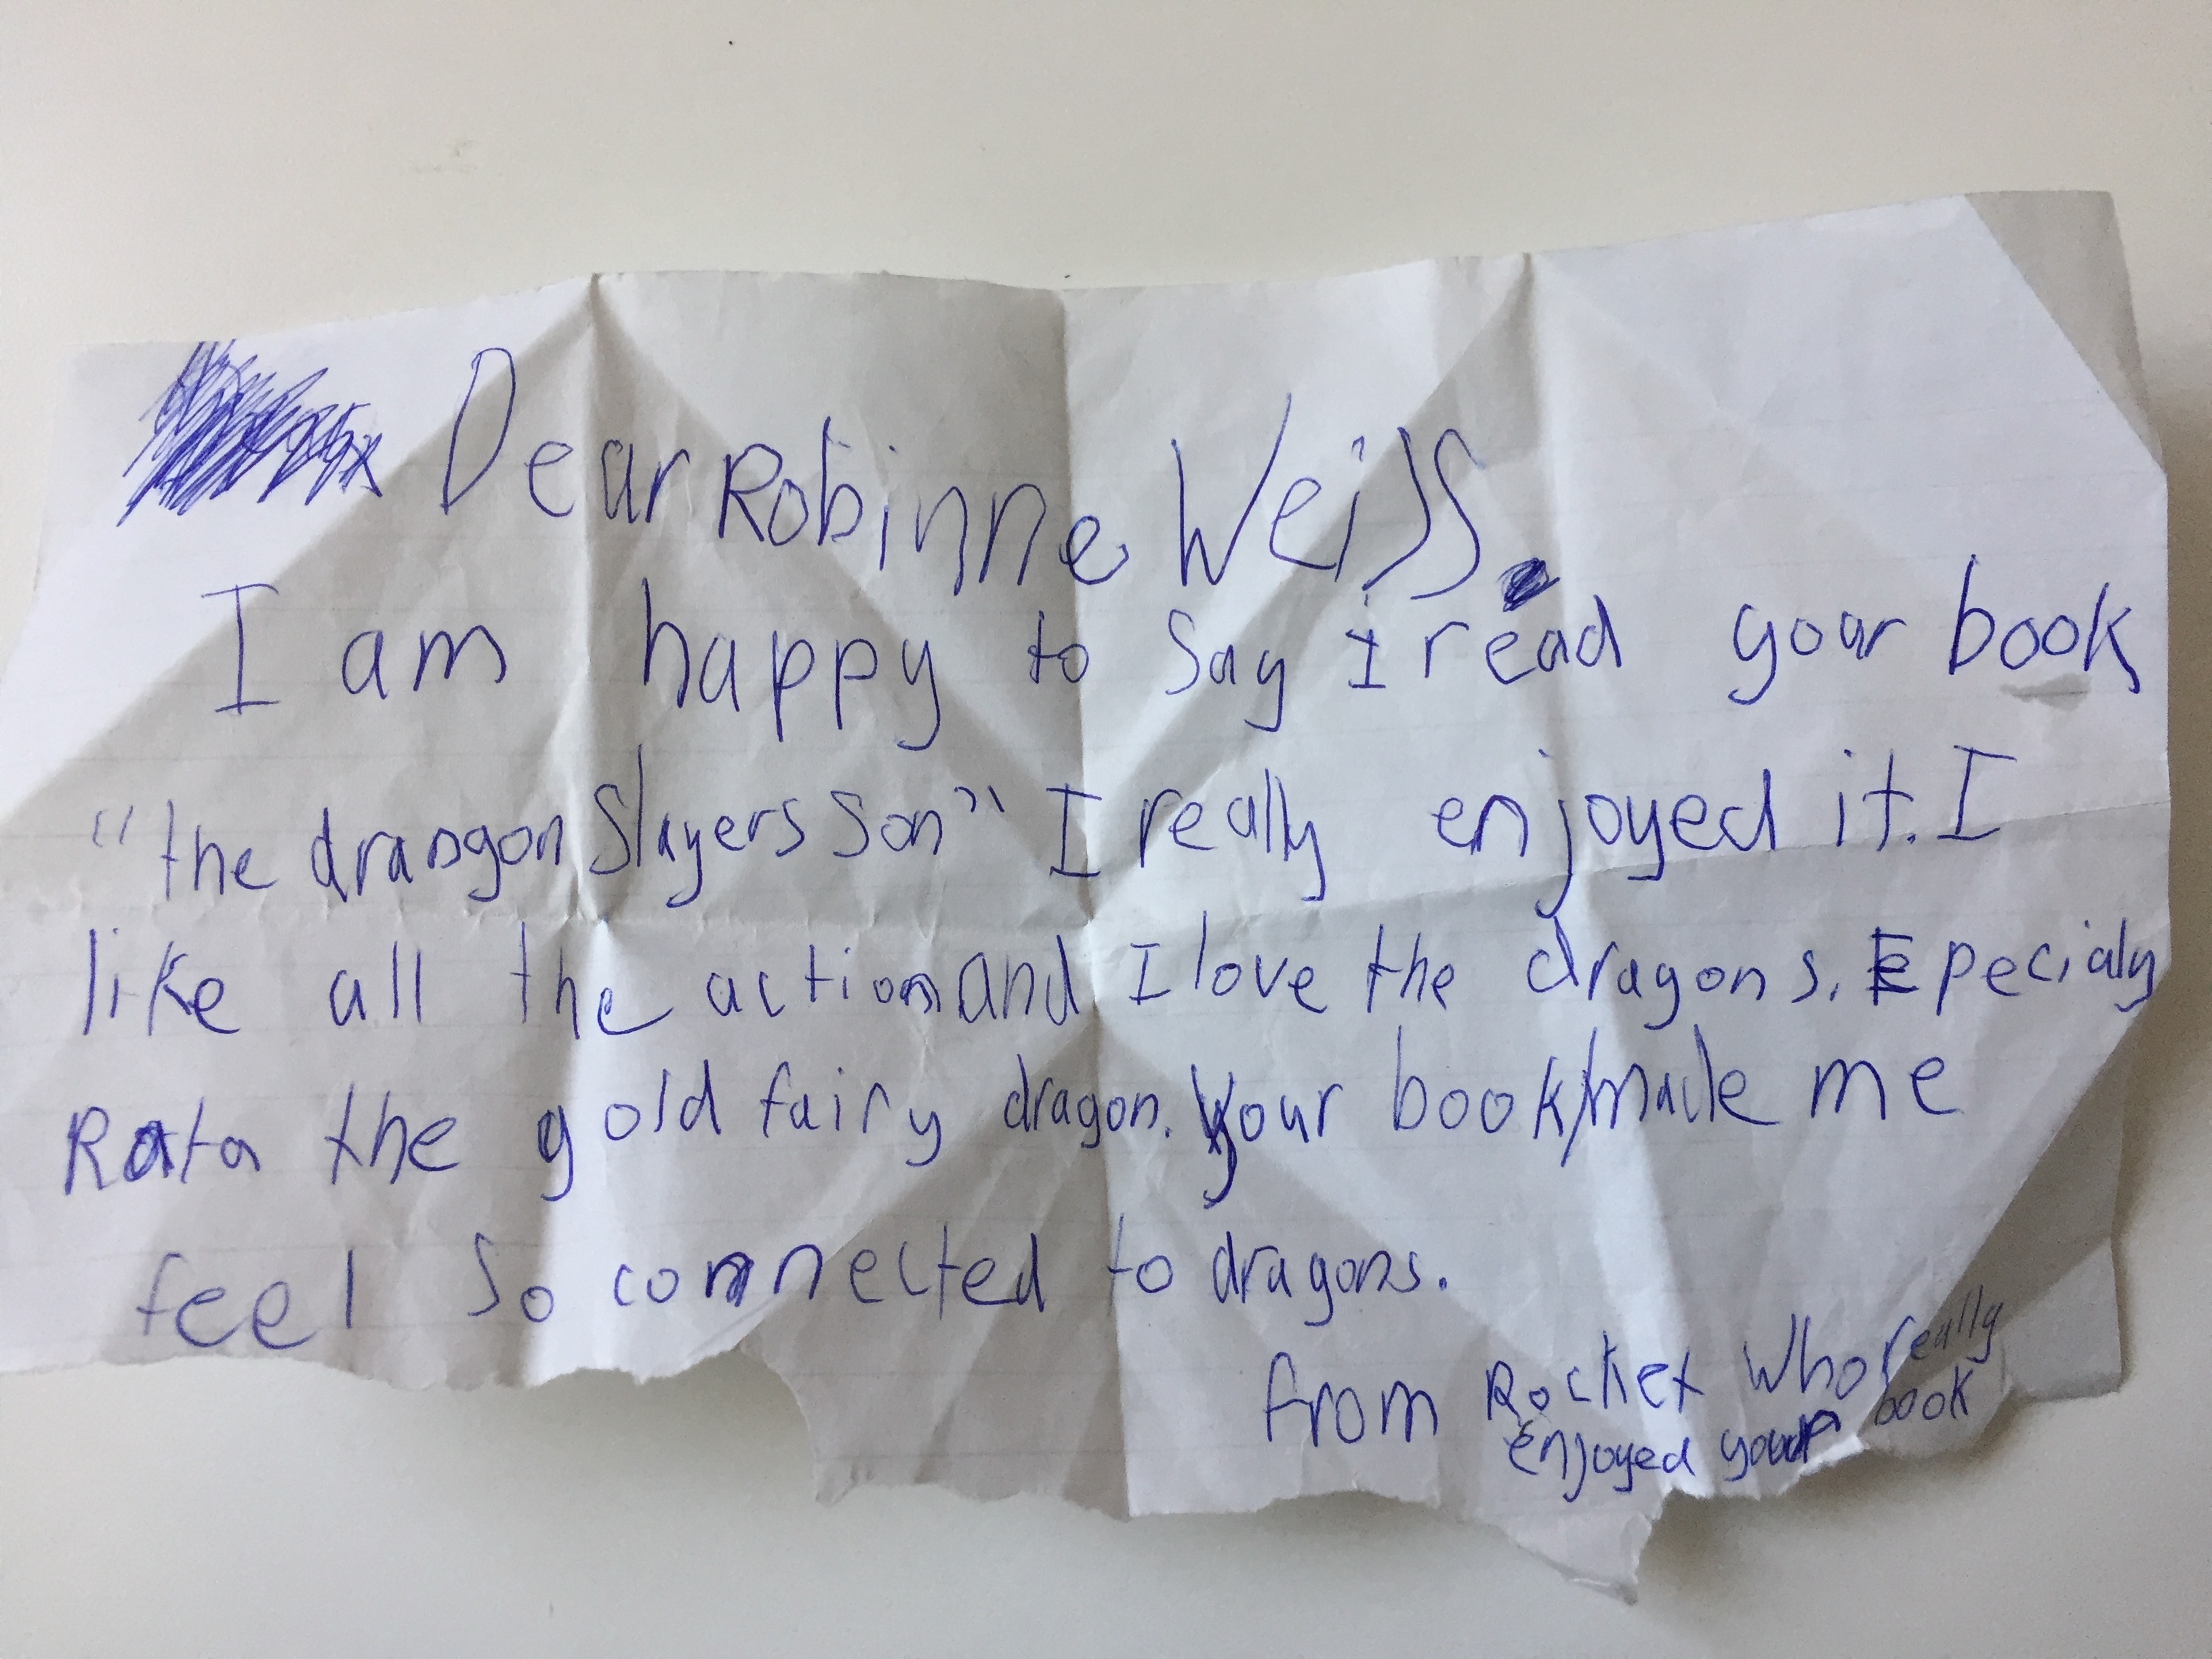 Dear Robinne Weiss.
I am happy to say I read your book
"the drangon slayers son" I really enjoyed it. I
like all the action and I love the dragons. Epecialy
Rata the gold fairy dragon. Your book/made me
feel so connected to dragons.
from Rocket who really
enjoyed your book